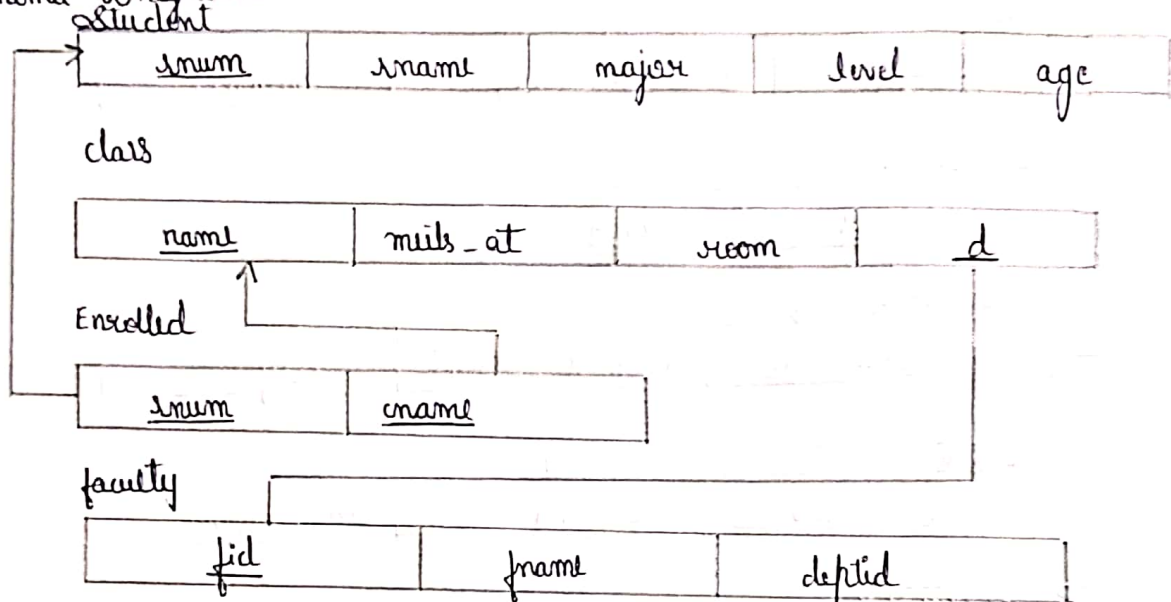 Student
snum sname major level age
class
name meets_at room d
Enrolled
snum cname
faculty
fid fname deptid